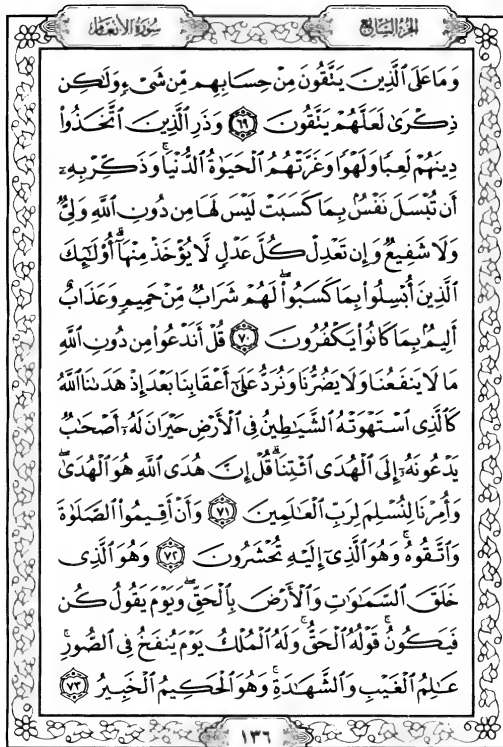 الجزء السابع
سورة الأنعام
وَمَا عَلَى ٱلَّذِينَ يَتَّقُونَ مِنْ حِسَابِهِم مِّن شَىْءٍ وَلَٰكِن
ذِكْرَىٰ لَعَلَّهُمْ يَتَّقُونَ ۝٦٩ وَذَرِ ٱلَّذِينَ ٱتَّخَذُوا۟
دِينَهُمْ لَعِبًا وَلَهْوًا وَغَرَّتْهُمُ ٱلْحَيَوٰةُ ٱلدُّنْيَا ۚ وَذَكِّرْ بِهِۦٓ
أَن تُبْسَلَ نَفْسٌۢ بِمَا كَسَبَتْ لَيْسَ لَهَا مِن دُونِ ٱللَّهِ وَلِىٌّ
وَلَا شَفِيعٌ وَإِن تَعْدِلْ كُلَّ عَدْلٍ لَّا يُؤْخَذْ مِنْهَآ ۗ أُو۟لَٰٓئِكَ
ٱلَّذِينَ أُبْسِلُوا۟ بِمَا كَسَبُوا۟ ۖ لَهُمْ شَرَابٌ مِّنْ حَمِيمٍ وَعَذَابٌ
أَلِيمٌۢ بِمَا كَانُوا۟ يَكْفُرُونَ ۝٧٠ قُلْ أَنَدْعُوا۟ مِن دُونِ ٱللَّهِ
مَا لَا يَنفَعُنَا وَلَا يَضُرُّنَا وَنُرَدُّ عَلَىٰٓ أَعْقَابِنَا بَعْدَ إِذْ هَدَىٰنَا ٱللَّهُ
كَٱلَّذِى ٱسْتَهْوَتْهُ ٱلشَّيَٰطِينُ فِى ٱلْأَرْضِ حَيْرَانَ لَهُۥٓ أَصْحَٰبٌ
يَدْعُونَهُۥٓ إِلَى ٱلْهُدَى ٱئْتِنَا ۗ قُلْ إِنَّ هُدَى ٱللَّهِ هُوَ ٱلْهُدَىٰ ۖ
وَأُمِرْنَا لِنُسْلِمَ لِرَبِّ ٱلْعَٰلَمِينَ ۝٧١ وَأَنْ أَقِيمُوا۟ ٱلصَّلَوٰةَ
وَٱتَّقُوهُ ۚ وَهُوَ ٱلَّذِىٓ إِلَيْهِ تُحْشَرُونَ ۝٧٢ وَهُوَ ٱلَّذِى
خَلَقَ ٱلسَّمَٰوَٰتِ وَٱلْأَرْضَ بِٱلْحَقِّ ۖ وَيَوْمَ يَقُولُ كُن
فَيَكُونُ ۚ قَوْلُهُ ٱلْحَقُّ ۚ وَلَهُ ٱلْمُلْكُ يَوْمَ يُنفَخُ فِى ٱلصُّورِ ۚ
عَٰلِمُ ٱلْغَيْبِ وَٱلشَّهَٰدَةِ ۚ وَهُوَ ٱلْحَكِيمُ ٱلْخَبِيرُ ۝٧٣
١٣٦